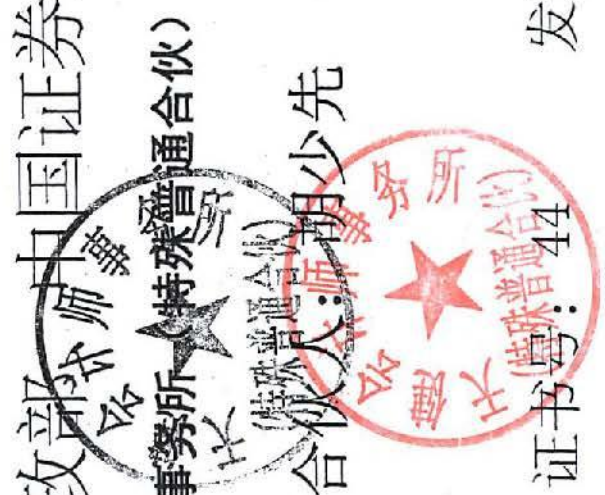 政部 中国证券
事务所（特殊普通合伙）
合伙人：胡少先
证书号：44 发
天健会计师事务所
(特殊普通合伙)
会计师事务所
(特殊普通合伙)